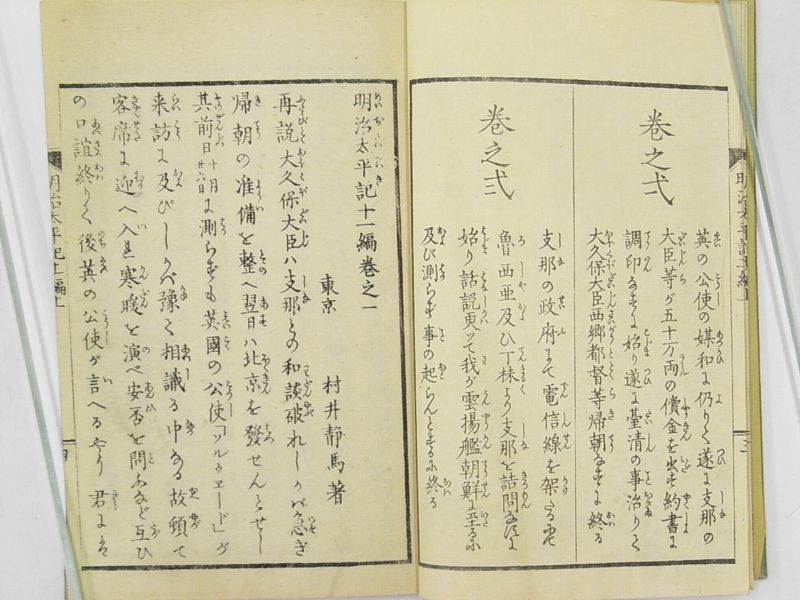 巻之弌
英の公使の媒和に仍りて遂に支那の
大臣等が五十万両の償金を出す約書に
調印なすに始り遂に臺清の事治りて
大久保大臣西郷都督等帰朝なすに終る
巻之弍
支那の政府にて電信線を架たる
魯西亜及ひ丁抹より支那を詰問なすに
始り話説更ッて我が雲揚艦朝鮮に至るに
及び測らず事の起らんとするに終る
明治太平記十一編巻之一
東京 村井静馬著
再説大久保大臣ハ支那との和談破れしかバ急ぎ
帰朝の准備を整へ翌日ハ北京を發せんとせし
其前日十月廿六日に測らずも英國の公使「ソルウェード」が
来訪に及びしかバ豫て相識る中なる故頓て
客席に迎へ入れ寒暖を演べ安否を問ふなど互ひ
の口誼終りて後英の公使が言へるやう君には
明治太平記十一編上